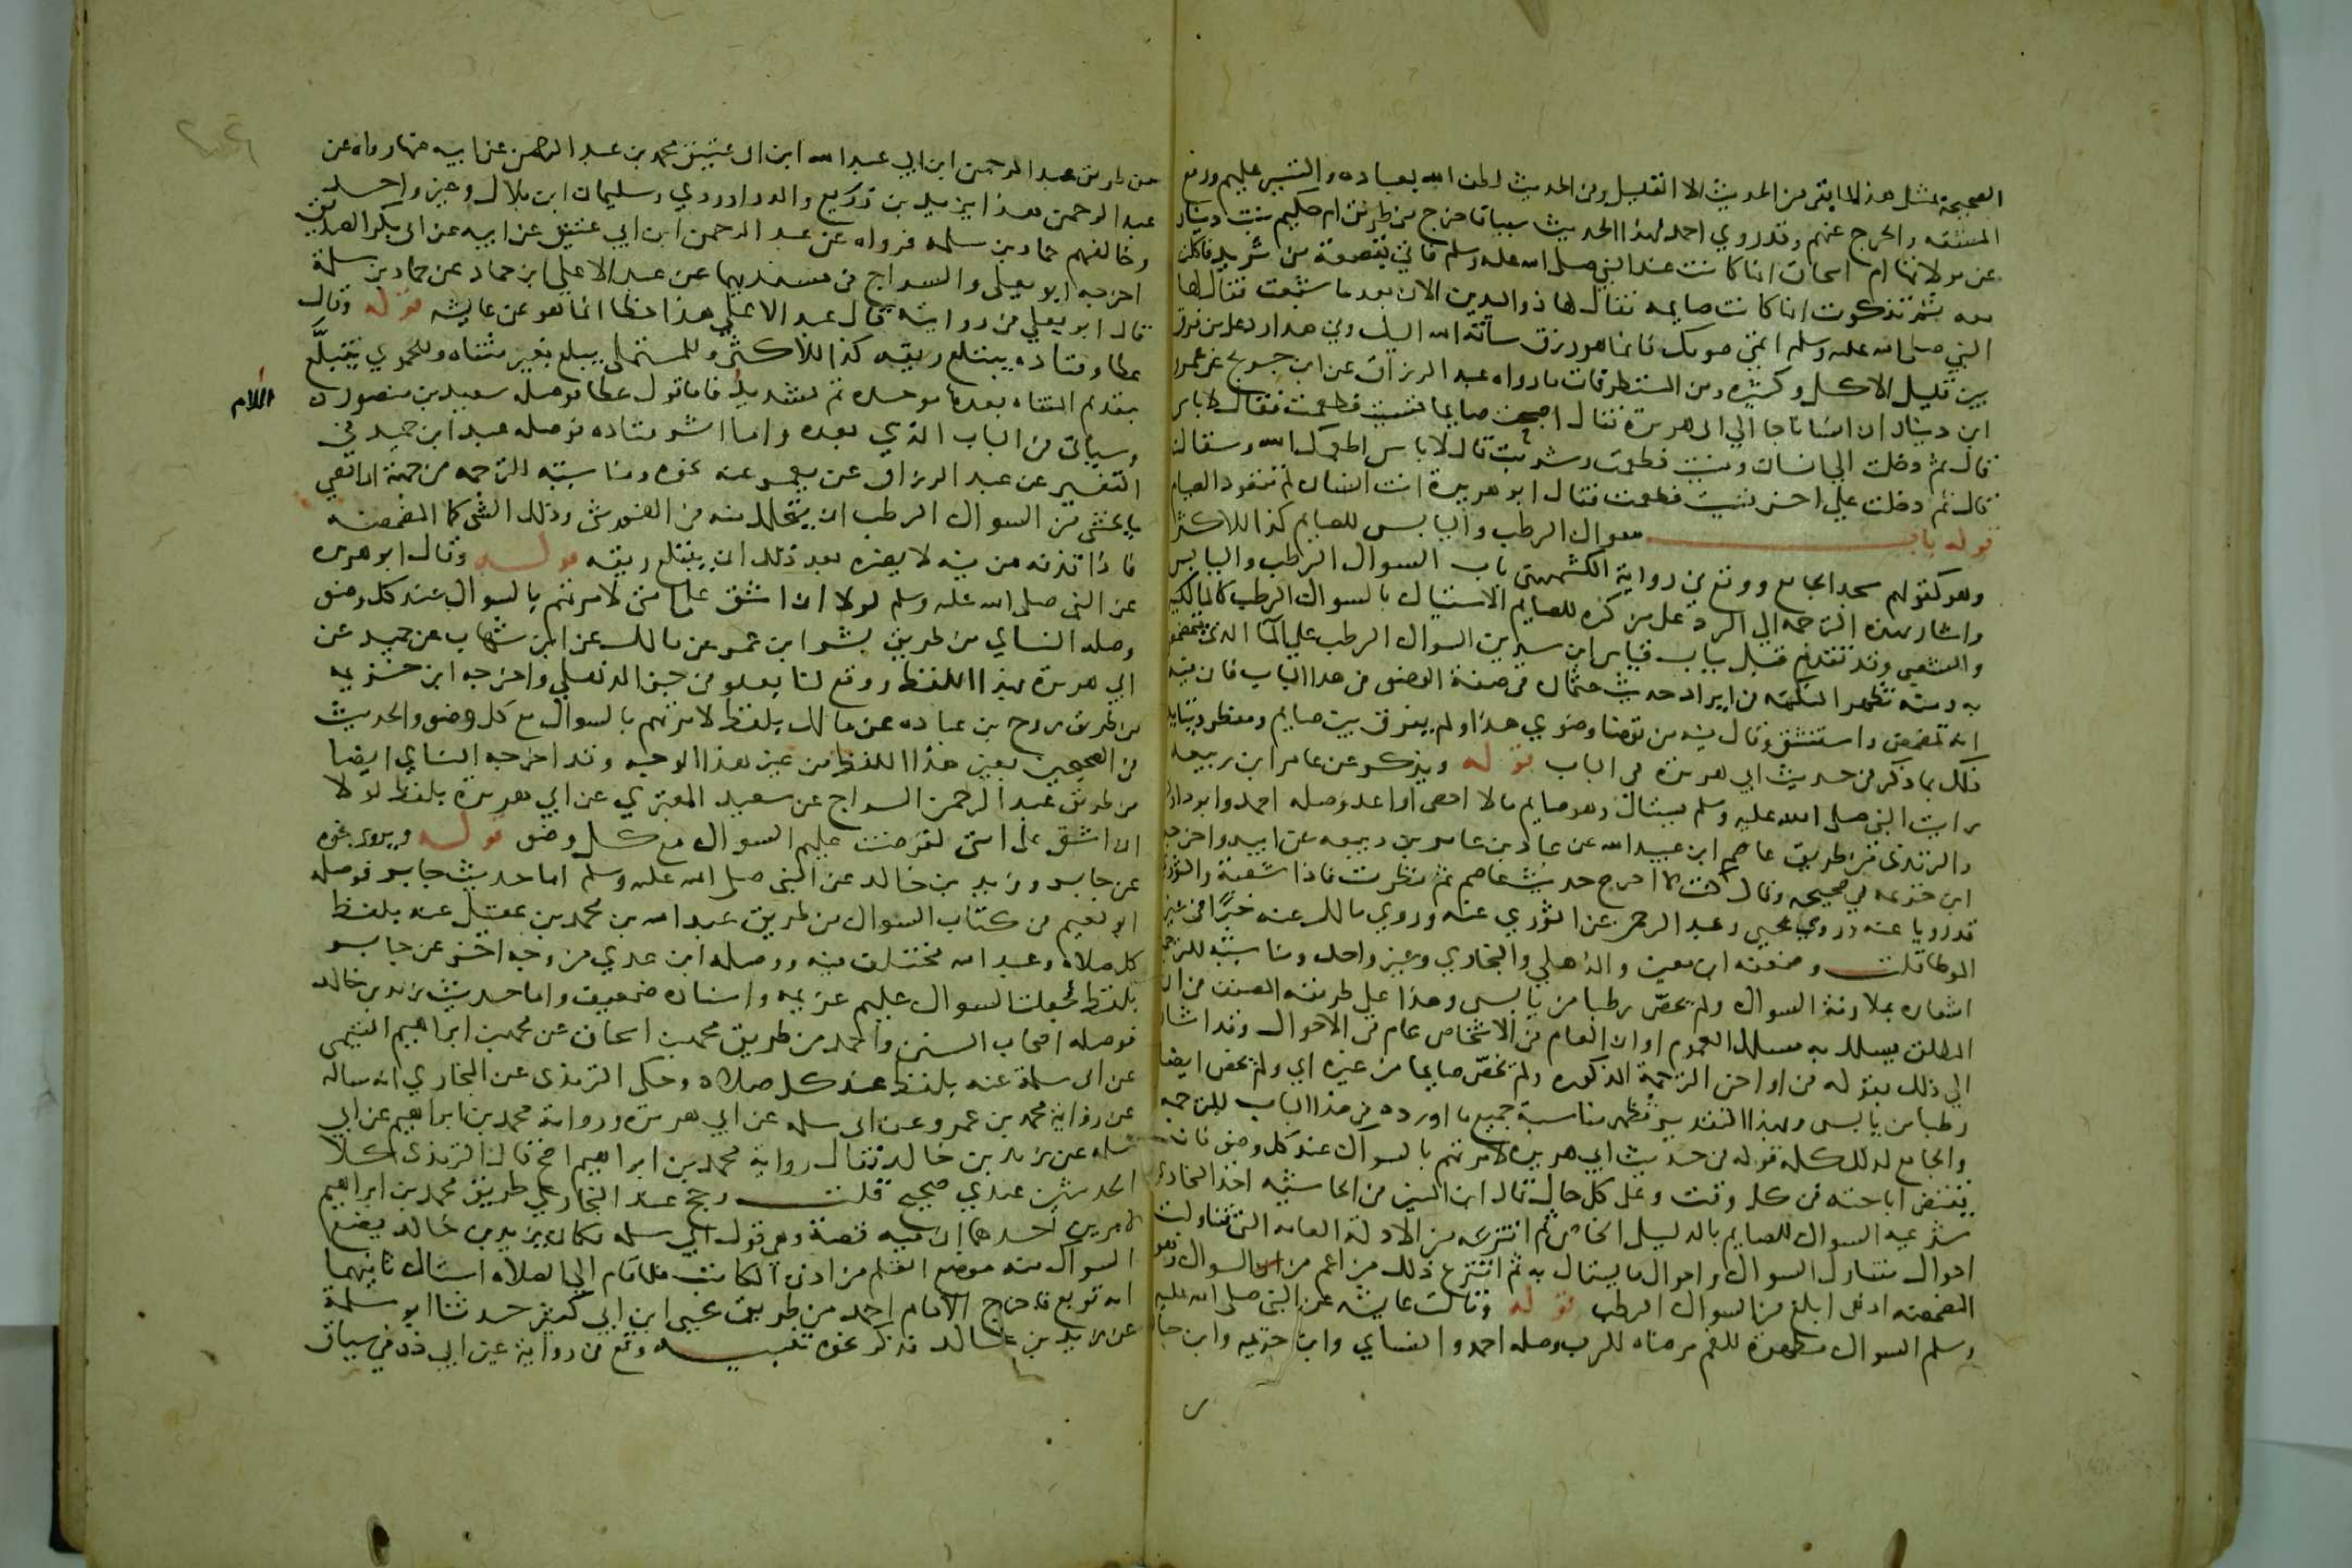 الصحيحة بمثل هذا لما بقي من الحديث الا القليل وفي الحديث لطف الله بعباده والتيسير عليهم ورفع
المشقه والحرج عنهم وقد روى احمد لهذا الحديث سببا فاخرج من طريق ام حكيم بنت دينار
عن مولاتها ام اسحاق انها كانت عند النبي صلى الله عليه وسلم فاتي بقصعة من ثريد فاكلت
معه ثم تذكرت انها كانت صايمه فقال لها ذو اليدين الان بعد ما شبعت فقال لها
النبي صلى الله عليه وسلم اتمي صومك فانما هو رزق ساقه الله اليك وفي هذا رد على من فرق
بين قليل الاكل وكثيره ومن المستظرفات ما رواه عبد الرزاق عن ابن جريج عن عمرو
ابن دينار ان انسانا جا الى ابي هريرة فقال اصبحت صايما فنسيت فطعمت فقال لا باس
قال ثم دخلت الى انسان ونسيت فطعمت وشربت قال لا باس اطعمك الله وسقاك
قال ثم دخلت على اخر فنسيت فطعمت فقال ابو هريرة انت انسان لم تتعود الصيام
قوله باب سواك الرطب واليابس للصايم كذا للاكثر
وهو كقولهم مسجد الجامع ووقع في رواية الكشميهني باب السواك الرطب واليابس
واشار بهذه الترجمه الى الرد على من كره للصايم الاستياك بالسواك الرطب كالمالكيه
والشعبي وقد تقدم قبل بباب قياس ابن سيرين السواك الرطب على الما الذي يتمضمض
به ومنه تظهر النكته في ايراد حديث عثمان في صفة الوضو في هذا الباب فان فيه
انه تمضمض واستنشق وقال فيه من توضا وضوي هذا ولم يفرق بين صايم ومفطر ويتايد
ذلك بما ذكر في حديث ابي هريرة في الباب قوله ويذكر عن عامر ابن ربيعه
رايت النبي صلى الله عليه وسلم يستاك وهو صايم ما لا احصي او اعد وصله احمد وابو داود
والترمذي من طريق عاصم ابن عبيد الله عن عبد الله بن عامر بن ربيعه عن ابيه واخرجه
ابن خزيمه في صحيحه وقال كنت لا اخرج حديث عاصم ثم نظرت فاذا شعبة والثوري
قد رويا عنه وروى يحيى وعبد الرحمن عن الثوري عنه وروى مالك عنه خبرا في غير
الموطا قلت وضعفه ابن معين والذهلي والبخاري وغير واحد ومناسبته للترجمه
اشعاره بملازمة السواك ولم يخص رطبا من يابس وهذا على طريقه المصنف في ان
المطلق يسلك به مسلك العموم او ان العام في الاشخاص عام في الاحوال وقد اشار
الى ذلك بقوله في اواخر الترجمة المذكوره ولم يخص صايما من غيره اي ولم يخص ايضا
رطبا من يابس وبهذا التقدير تظهر مناسبة جميع ما اورده في هذا الباب للترجمه
والجامع لذلك كله قوله في حديث ابي هريرة لامرتهم بالسواك عند كل وضو فانه
يقتضي اباحته في كل وقت وعلى كل حال قال ابن المنير في الحاشيه اخذ البخاري
شرعيه السواك للصايم بالدليل الخاص ثم انتزعه من الادلة العامه التي تناولت
احوال متناول السواك واحوال ما يستاك به ثم انتزع ذلك من اعم من السواك وهو
المضمضه اذ هي ابلغ من السواك الرطب قوله وقالت عايشه عن النبي صلى الله عليه
وسلم السواك مطهرة للفم مرضاه للرب وصله احمد والنساي وابن خزيمه وابن حبان
من طريق عبد الرحمن ابن ابي عبد الله ابن ابي عتيق محمد بن عبد الرحمن عن ابيه عنها رواه عن
عبد الرحمن هذا يزيد بن زريع والدراوردي وسليمان ابن بلال وغير واحد
وخالفهم حماد بن سلمه فرواه عن عبد الرحمن ابن ابي عتيق عن ابيه عن ابي بكر الصديق
اخرجه ابو يعلى والسراج في مسنديهما عن عبد الاعلى ابن حماد عن حماد بن سلمة
قال ابو يعلى في روايته قال عبد الاعلى هذا خطا انما هو عن عايشه قوله وقال
عطا وقتاده يبتلع ريقه كذا للاكثر وللمستملي يبلع بغير مثناه وللحموي يتبلع
بتقديم المثناه بعدها موحده ثم تشديد فاما قول عطا فوصله سعيد بن منصور
اللام
وسياتي في الباب الذي بعده واما اثر قتاده فوصله عبد ابن حميد في
التفسير عن عبد الرزاق عن معمر عنه نحوه ومناسبته للترجمه من جهة ان اقصى
ما يخشى من السواك الرطب ان يتحلل منه في الفم شي وذلك الشي كما المضمضه
فاذا قذفه من فيه لا يضره بعد ذلك ان يبتلع ريقه قوله وقال ابو هريره
عن النبي صلى الله عليه وسلم لولا ان اشق على امتي لامرتهم بالسواك عند كل وضو
وصله النساي من طريق بشر ابن عمر عن مالك عن ابن شهاب عن حميد عن
ابي هريرة بهذا اللفظ ووقع لنا بعلو في جزء الذهلي واخرجه ابن خزيمه
من طريق روح بن عباده عن مالك بلفظ لامرتهم بالسواك مع كل وضو والحديث
في الصحيحين بغير هذا اللفظ من غير هذا الوجه وقد اخرجه النساي ايضا
من طريق عبد الرحمن السراج عن سعيد المقبري عن ابي هريرة بلفظ لولا
ان اشق على امتي لفرضت عليهم السواك مع كل وضو قوله ويروى نحوه
عن جابر وزيد بن خالد عن النبي صلى الله عليه وسلم اما حديث جابر فوصله
ابو نعيم في كتاب السواك من طريق عبد الله بن محمد بن عقيل عنه بلفظ
كل صلاه وعبد الله مختلف فيه ووصله ابن عدي من وجه اخر عن جابر
بلفظ لجعلت السواك عليهم عزيمه واسناده ضعيف واما حديث زيد بن خالد
فوصله اصحاب السنن واحمد من طريق محمد بن اسحاق عن محمد بن ابراهيم التيمي
عن ابي سلمة عنه بلفظ عند كل صلاه وحكى الترمذي عن البخاري انه ساله
عن رواية محمد بن عمرو عن ابي سلمه عن ابي هريرة ورواية محمد بن ابراهيم عن ابي
سلمه عن زيد بن خالد فقال رواية محمد بن ابراهيم اصح قال الترمذي كلا
الحديثين عندي صحيح قلت رجح عند البخاري طريق محمد بن ابراهيم
لامرين احدهما ان فيه قصة وهي قول ابي سلمه فكان زيد بن خالد يضع
السواك منه موضع القلم من اذن الكاتب فكلما قام الى الصلاه استاك ثانيهما
انه توبع فاخرج الامام احمد من طريق يحيى ابن ابي كثير حدثنا ابو سلمة
عن زيد بن خالد فذكر نحوه تنبيه وقع في رواية غير ابي ذر في سياق